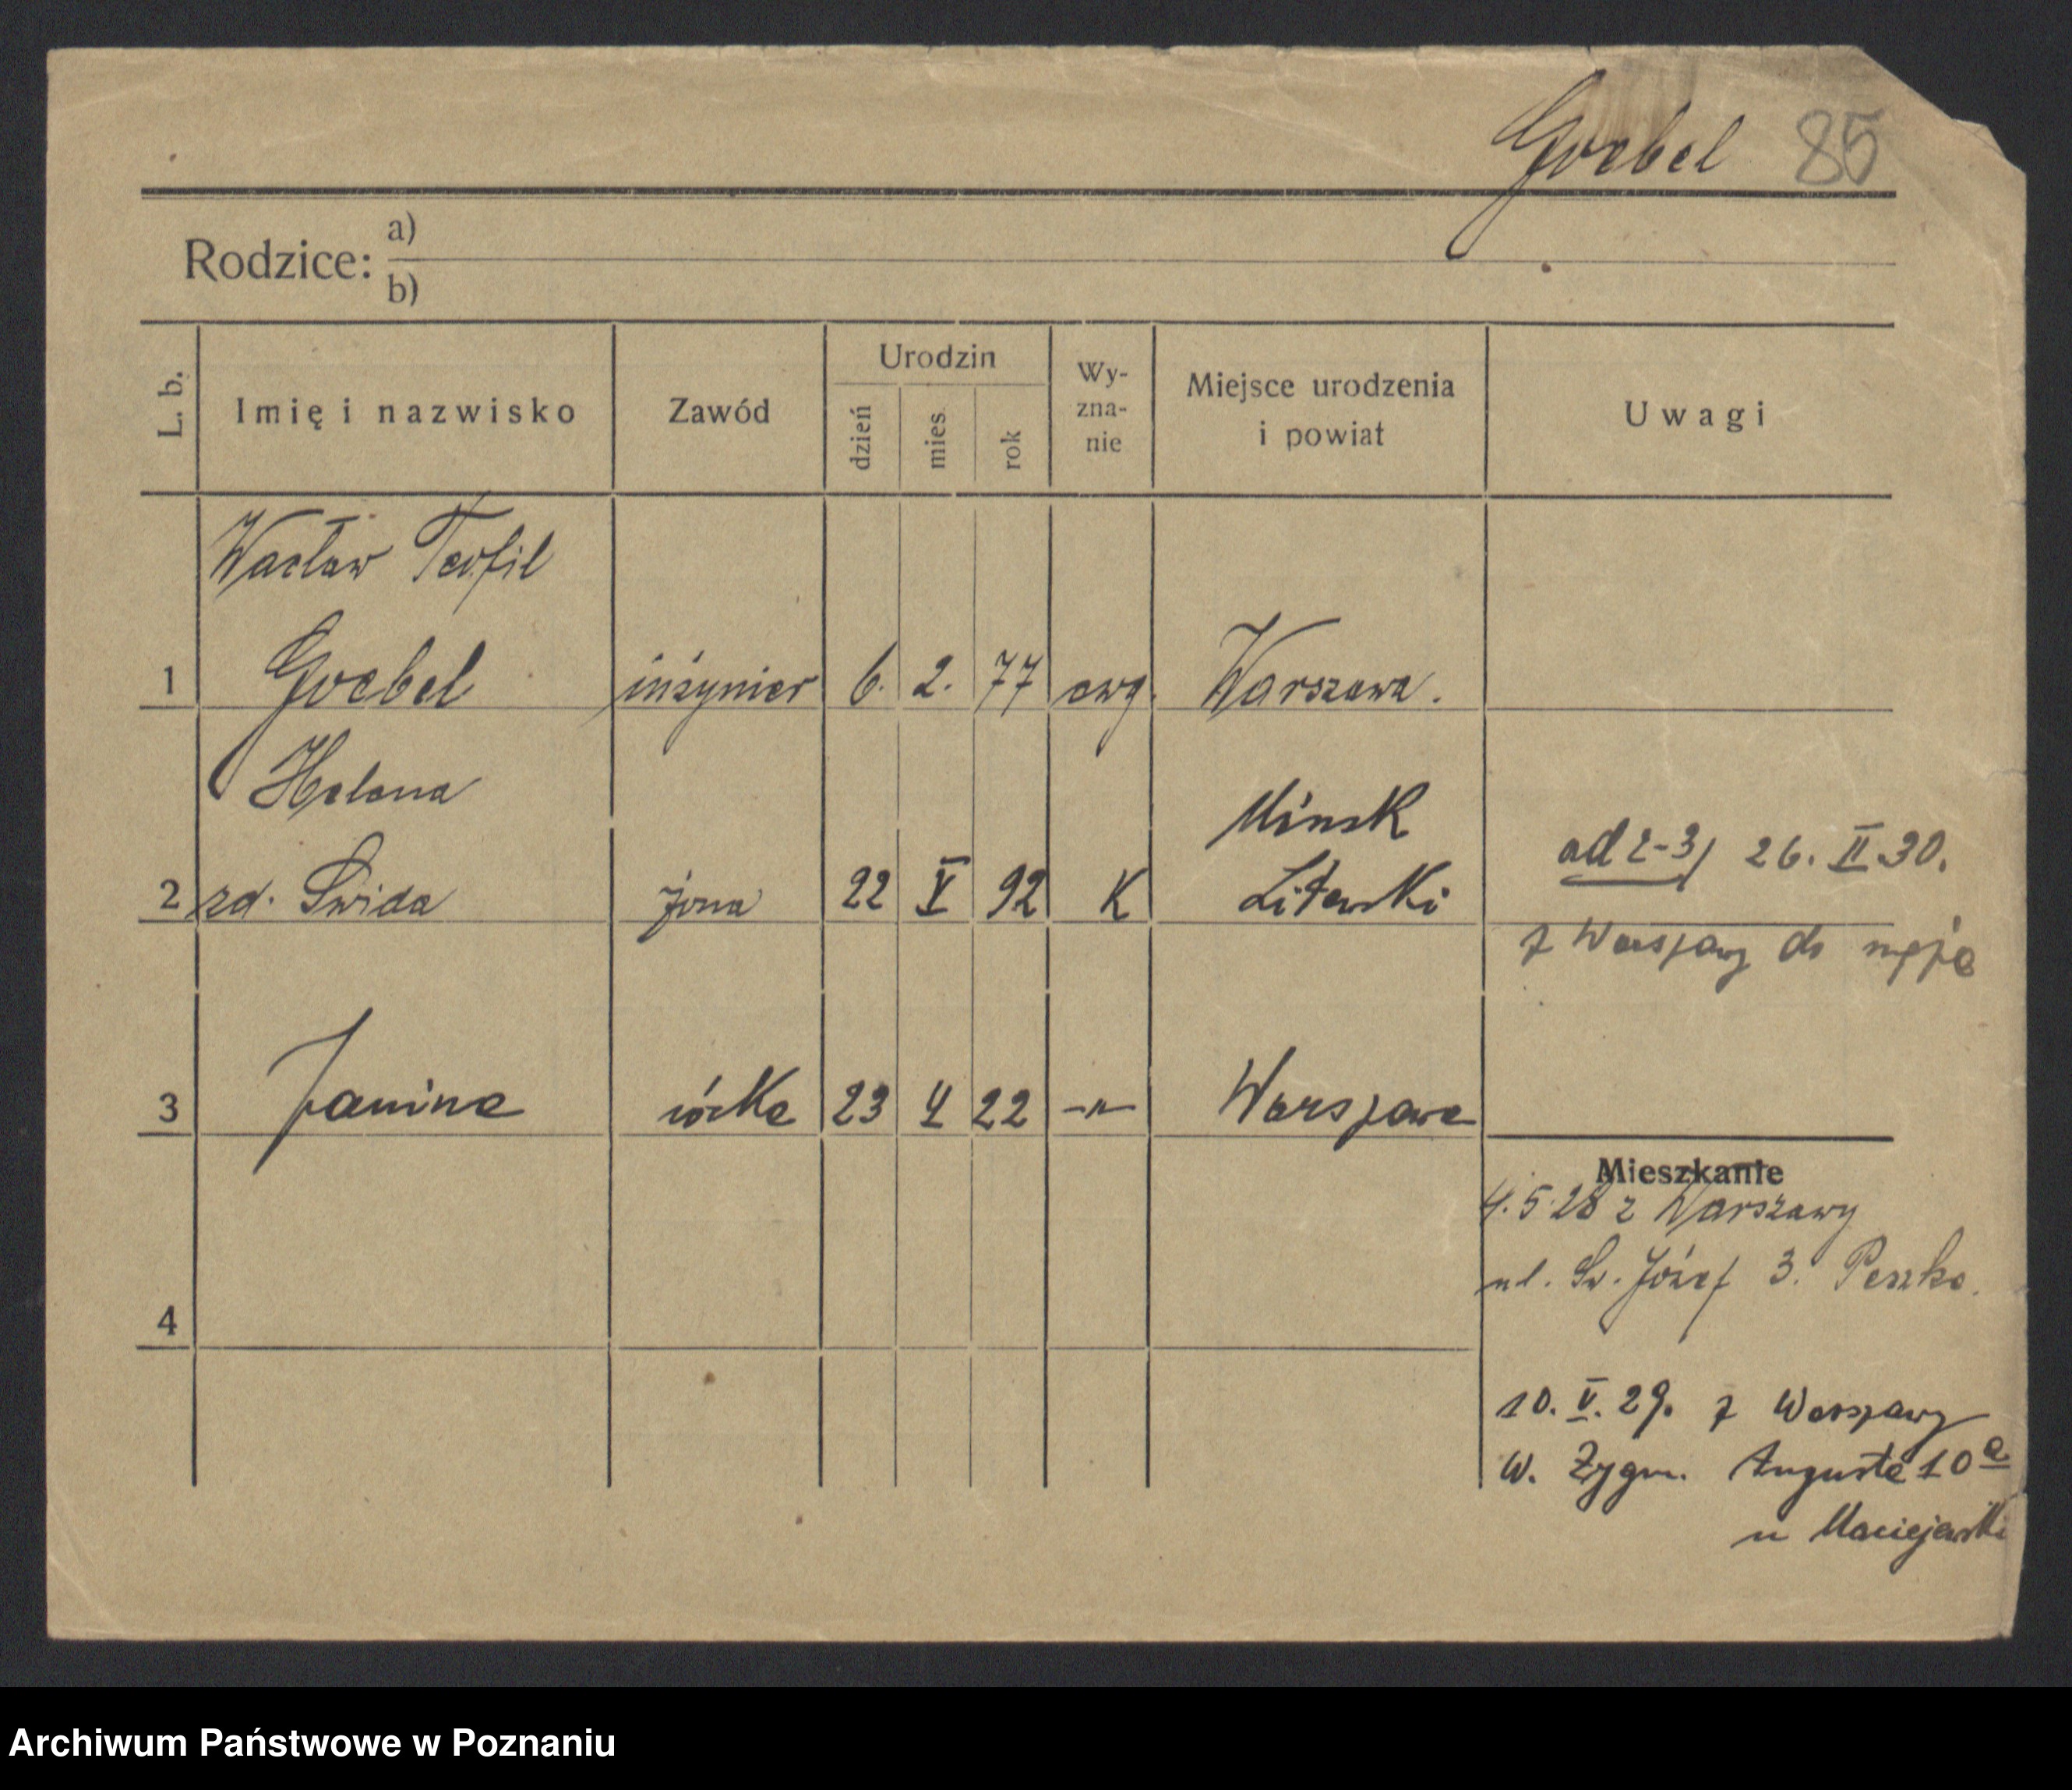 Goebel 85
Rodzice:
a)
b)
L. b.
Imię i nazwisko
Zawód
Urodzin
dzień
mies.
rok
Wy-
zna-
nie
Miejsce urodzenia
i powiat
Uwagi
Wacław Teofil
1 Goebel inżynier 6. 2. 77 ewg. Warszawa.
Helena
Mińsk
2 zd. Świda żona 22 V 92 K Litewski
ad 2-3/ 26. II 30.
z Warszawy do męża
3 Janina córka 23 4 22 -"- Warszawa
Mieszkanie
4.5.28 z Warszawy
ul. Św. Józef 3. Peszke.
4
10. V. 29. z Warszawy
W. Zygm. Augusta 10 a
u Maciejewski
Archiwum Państwowe w Poznaniu